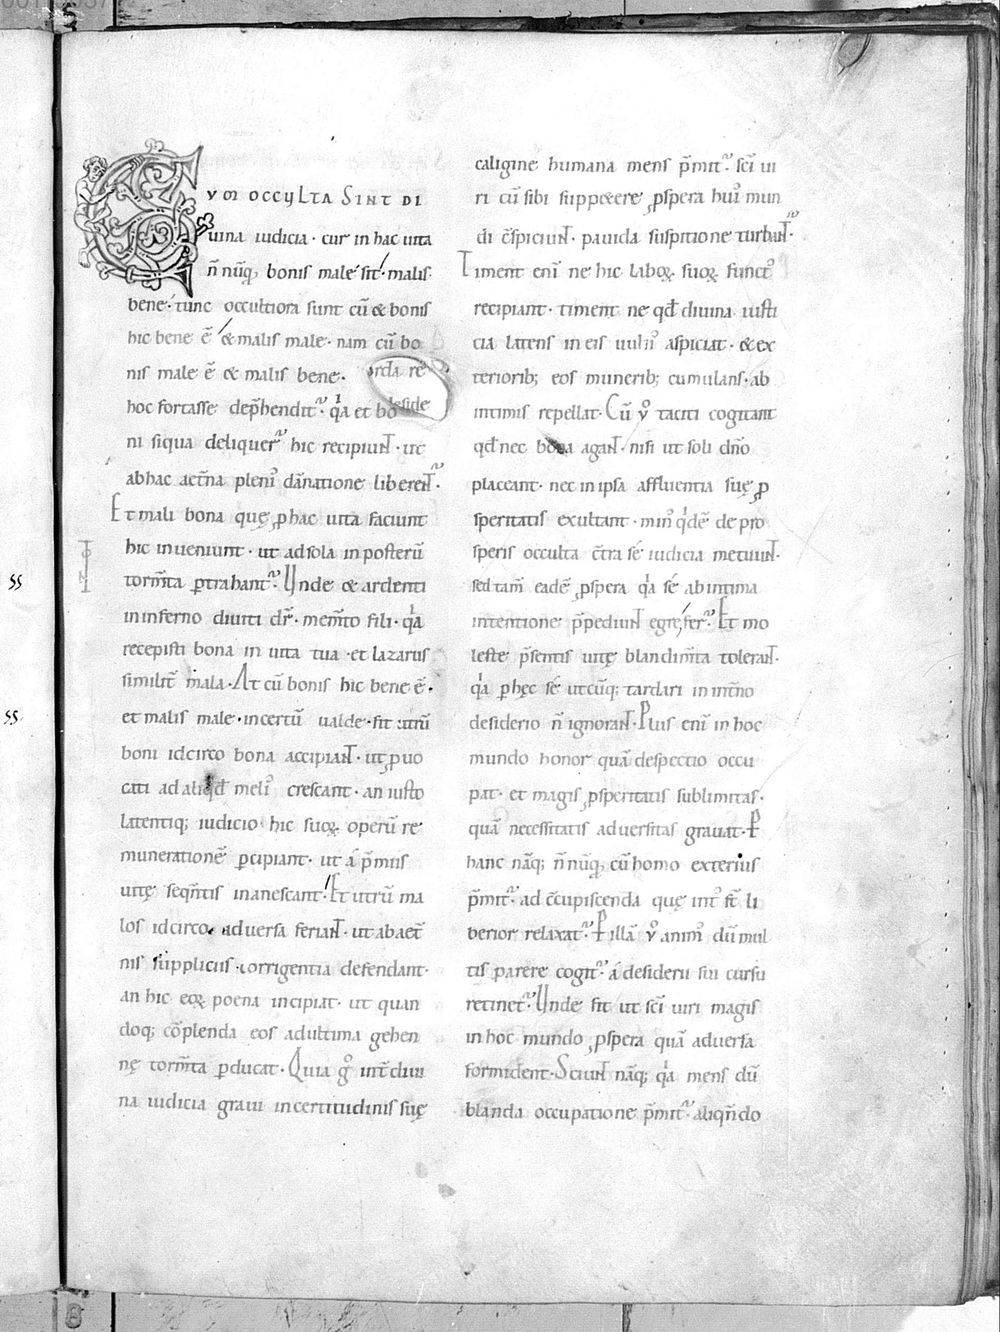 CUM OCCULTA SINT DI
uina iudicia · cur in hac uita
n̄ nūq; bonis male sit · malis
bene · tunc occultiora sunt cū & bonis
hic bene ē & malis male · nam cū bo
nis male ē & malis bene ·
hoc fortasse dep̄hendit᷑ · qͥa et bo
ni siqua deliquer᷑ hic recipiuNT · ut
abhac aet̄na pleniꝰ dānatione liberenT᷑ ·
Et mali bona quę ꝓ hac uita faciunt
hic inueniunt · ut adsola in posterū
torm̄ta ꝑtrahant᷑ · Vnde & ardenti
in inferno diuiti dr̄ · mem̄to fili · qͥa
recepisti bona in uita tua · et lazarus
similit̄ mala · At cū bonis hic bene ē ·
et malis male · incertū ualde · fit utrū
boni idcirco bona accipiaNT · ut ꝓuo
cati ad aliqͥd meliꝰ crescant · an iusto
latentiq; iudicio hic suoꝝ operū re
munerationē ꝑcipiant · ut á p̄miis
uitę seqn̄tis inanescant · Et utrū ma
los idcirco · aduersa feriaNT · ut abaet̄
nis suppliciis · corrigentia defendant ·
an hic eoꝝ poena incipiat · ut quan
doq; cōplenda eos adultima gehen
nę torm̄ta ꝑducat · Quia gͦ int̄ diui
na iudicia graui incertitudinis suę
caligine humana mens p̄mit᷑ · sc̄i ui
ri cū sibi suppetere ꝓspera huiꝰ mun
di c̄spiciuNT · pauida suspitione turbaNT᷑ ·
Timent eni̅ ne hic laboꝝ suoꝝ fructꝰ
recipiant · timent ne qđ diuina iusti
cia latens in eis uulnꝰ aspiciat · & ex
teriorib; eos munerib; cumulans · ab
intimis repellat · Cū uͦ taciti cogitant
qđ nec bona agaNT · nisi ut soli dn̄o
placeant · nec in ipsa affluentia suę ꝓ
speritatis exultant · minꝰ qͥdē de pro
speris occulta c̄tra sé iudicia metuuNT ·
sed tam̄ eadē ꝓspera qͥa sé abintima
intentione p̄pediuNT egre fer᷑ · Et mo
leste p̄sentis uitę blandim̄ta toleraNT ·
qͥa ꝑ hęc sé utcūq; tardari in int̄no
desiderio n̄ ignoraNT · Plus eni̅ in hoc
mundo honor quā despectio occu
pat · et magis ꝓsperitatis sublimitas ·
quā necessitatis aduersitas grauat · P
hanc nāq; n̄ nūq; cū homo exterius
p̄mit᷑ · ad c̄cupiscenda quę intꝰ st̄ li
berior relaxat᷑ · P illā uͦ animꝰ dū mul
tis parere cogit᷑ · á desiderii sui cursu
retinet᷑ · Vnde fit ut sc̄i uiri magis
in hoc mundo ꝓspera quā aduersa
formident · SciuNT nāq; qͥa mens dū
blanda occupatione p̄mit᷑ · aliqn̄do